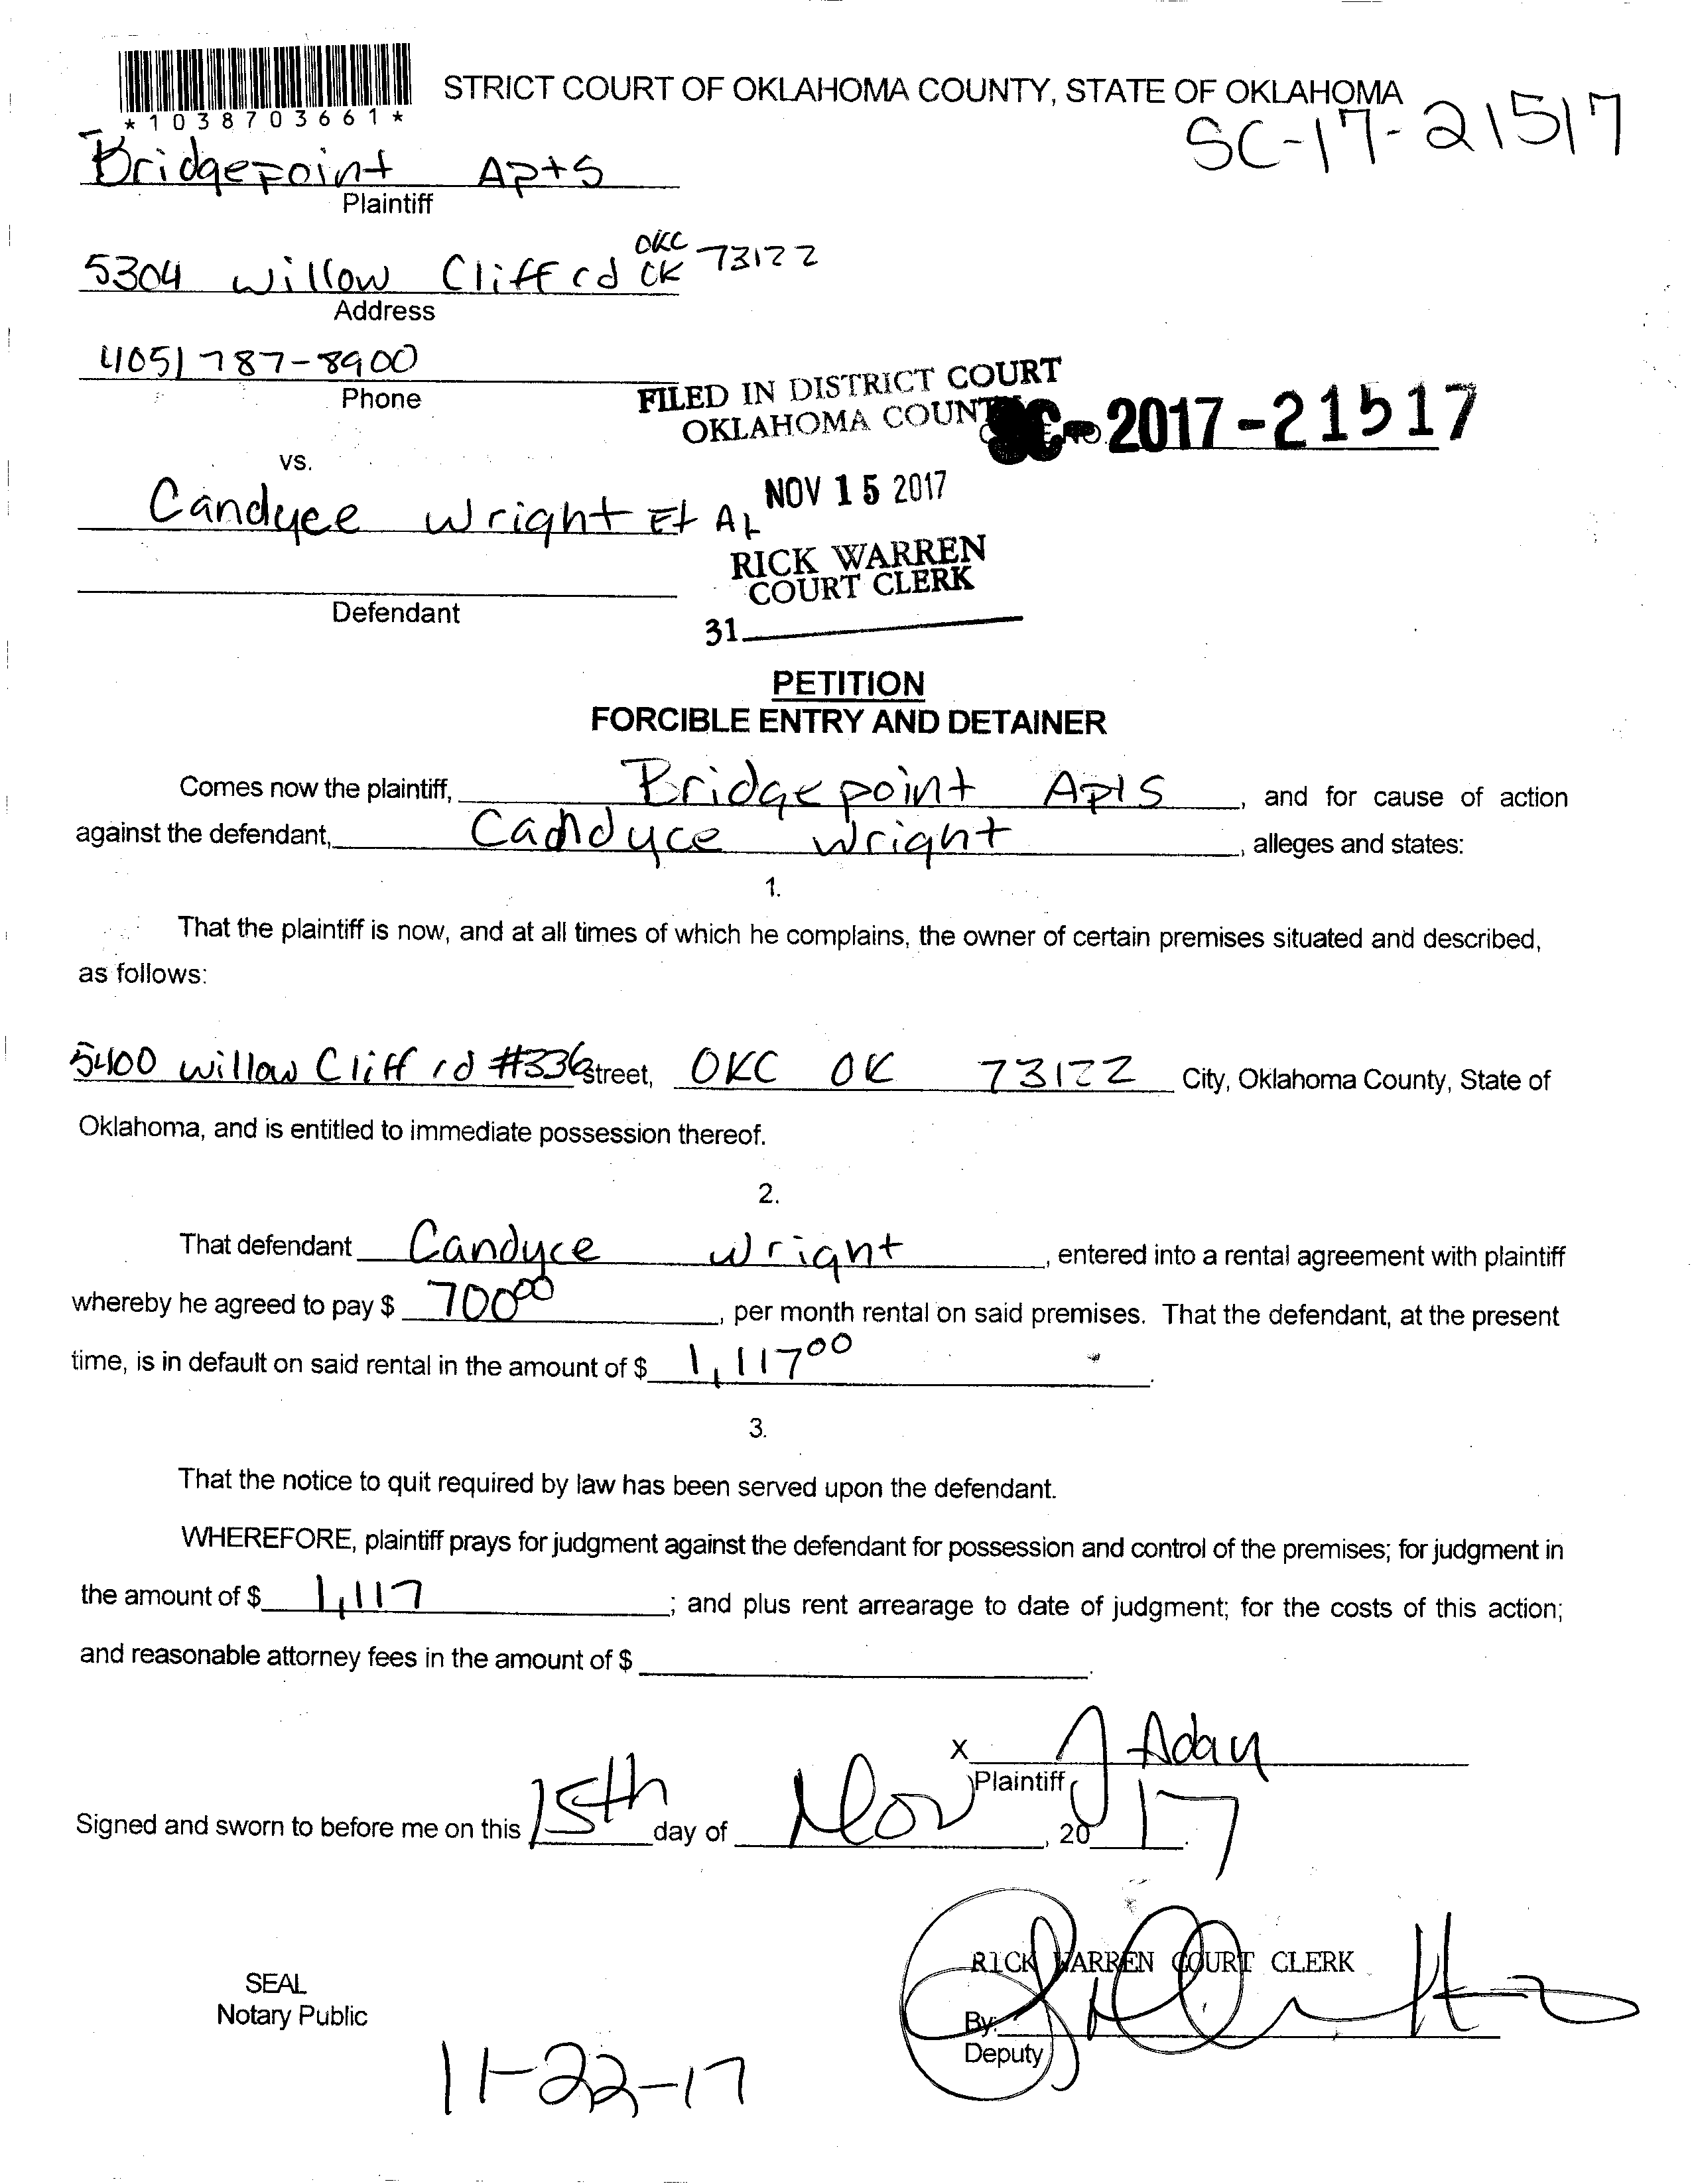 *1038703661*
STRICT COURT OF OKLAHOMA COUNTY, STATE OF OKLAHOMA
SC-17-21517
Bridgepoint Apts
Plaintiff
5304 Willow Cliff rd OKC OK 73122
Address
405) 787-8900
Phone
FILED IN DISTRICT COURT
OKLAHOMA COUNTY
SC-2017-21517
vs.
Candyce Wright Et Al
NOV 15 2017
RICK WARREN
COURT CLERK
Defendant
31
PETITION
FORCIBLE ENTRY AND DETAINER
Comes now the plaintiff, Bridgepoint Apts, and for cause of action
against the defendant, Candyce Wright, alleges and states:
1.
That the plaintiff is now, and at all times of which he complains, the owner of certain premises situated and described,
as follows:
5400 Willow Cliff rd #336 Street, OKC OK 73122 City, Oklahoma County, State of
Oklahoma, and is entitled to immediate possession thereof.
2.
That defendant Candyce Wright, entered into a rental agreement with plaintiff
whereby he agreed to pay $ 700 00, per month rental on said premises. That the defendant, at the present
time, is in default on said rental in the amount of $ 1,117 00.
3.
That the notice to quit required by law has been served upon the defendant.
WHEREFORE, plaintiff prays for judgment against the defendant for possession and control of the premises; for judgment in
the amount of $ 1,117; and plus rent arrearage to date of judgment; for the costs of this action;
and reasonable attorney fees in the amount of $
X J Aday
Plaintiff
Signed and sworn to before me on this 15th day of Nov, 2017.
RICK WARREN COURT CLERK
SEAL
Notary Public
By:
Deputy
11-22-17